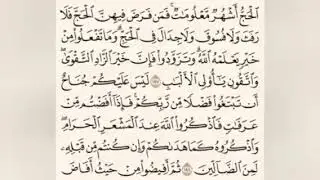 ٱلْحَجُّ أَشْهُرٌ مَّعْلُومَٰتٌ فَمَن فَرَضَ فِيهِنَّ ٱلْحَجَّ فَلَا
رَفَثَ وَلَا فُسُوقَ وَلَا جِدَالَ فِى ٱلْحَجِّ وَمَا تَفْعَلُوا۟ مِنْ
خَيْرٍ يَعْلَمْهُ ٱللَّهُ وَتَزَوَّدُوا۟ فَإِنَّ خَيْرَ ٱلزَّادِ ٱلتَّقْوَىٰ
وَٱتَّقُونِ يَٰٓأُو۟لِى ٱلْأَلْبَٰبِ ۝١٩٧ لَيْسَ عَلَيْكُمْ جُنَاحٌ
أَن تَبْتَغُوا۟ فَضْلًا مِّن رَّبِّكُمْ فَإِذَآ أَفَضْتُم مِّنْ
عَرَفَٰتٍ فَٱذْكُرُوا۟ ٱللَّهَ عِندَ ٱلْمَشْعَرِ ٱلْحَرَامِ
وَٱذْكُرُوهُ كَمَا هَدَىٰكُمْ وَإِن كُنتُم مِّن قَبْلِهِۦ
لَمِنَ ٱلضَّآلِّينَ ۝١٩٨ ثُمَّ أَفِيضُوا۟ مِنْ حَيْثُ أَفَاضَ